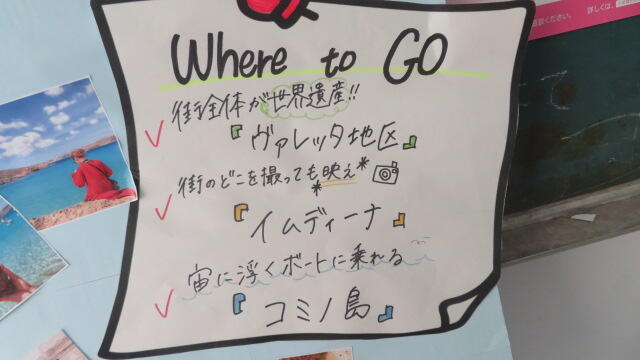 Where to GO
街全体が世界遺産!!
『ヴァレッタ地区』
街のどこを撮っても映え
『イムディーナ』
宙に浮くボートに乗れる
『コミノ島』
詳しくは、
ください。